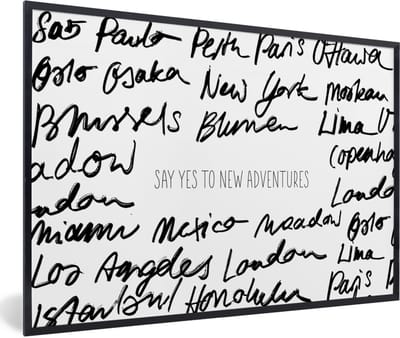 Sao Paulo Perth Paris Ottawa
Oslo Osaka New York
Brussels Blumen Lima
adow Copenha
SAY YES TO NEW ADVENTURES
ndon Londo
Miami Mexico Meadow Oslo
Los Angeles London Lima
Istanbul Honolulu Paris